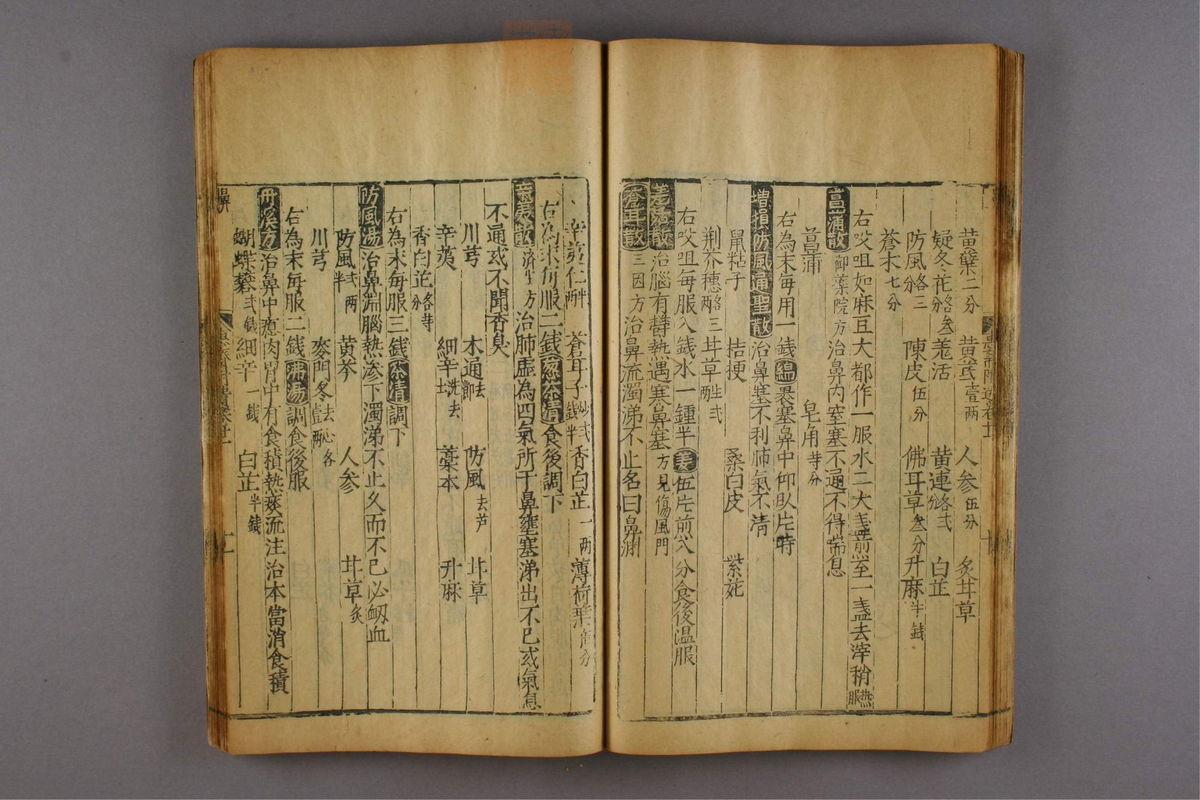 黃蘗二分　黃芩壹兩　人參伍分　炙甘草
疑冬花各叁分　羌活　黃連各弍　白芷
防風各三　陳皮伍分　佛耳草叁分　升麻半錢
蒼木七分
右㕮咀如麻豆大都作一服水二大盞煎至一盞去滓稍熱服
菖蒲散御藥院方治鼻內窒塞不通不得喘息
菖蒲　皂角等分
右為末每用一錢綿裹塞鼻中仰臥片時
增損防風通聖散治鼻塞不利肺氣不清
鼠粘子　桔梗　桑白皮　紫菀
荊芥穗各三兩　甘草生弍兩
右㕮咀每服八錢水一鍾半姜伍片煎八分食後溫服
治腦有鬱熱遇寒鼻塞方見傷風門
蒼耳散三因方治鼻流濁涕不止名曰鼻淵
辛荑仁半兩　蒼耳子炒弍錢半　香白芷一兩　薄荷葉
右為末每服二錢葱茶清食後調下
辛夷散濟生方治肺虛為四氣所干鼻壅塞涕出不已或氣息
不通或不聞香臭
川芎　木通去節　防風去芦　甘草
辛夷　細辛洗去土　藁本　升麻
香白芷各等分
右為末每服三錢茶清調下
防風湯治鼻淵腦熱滲下濁涕不止久而不已必衂血
防風弍兩半　黃芩　人參　甘草炙
川芎　麥門冬去心各壹兩
右為末每服二錢沸湯調食後服
丹溪方治鼻中瘜肉胃中有食積熱痰流注治本當消食積
蝴蝶藥弍錢　細辛一錢　白芷半錢